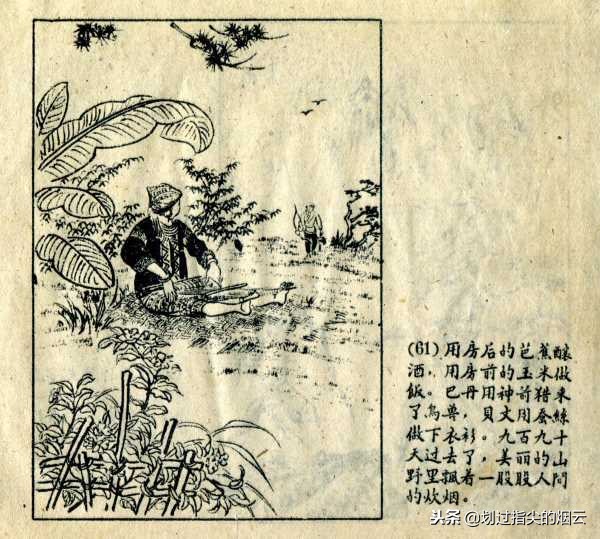 (61) 用房后的芭蕉釀
酒，用房前的玉米做
飯。巴丹用神箭猎来
了鳥兽，貝文用蚕絲
做下衣衫。九百九十
天过去了，美丽的山
野里飄着一股股人間
的炊烟。
头条 @划过指尖的烟云